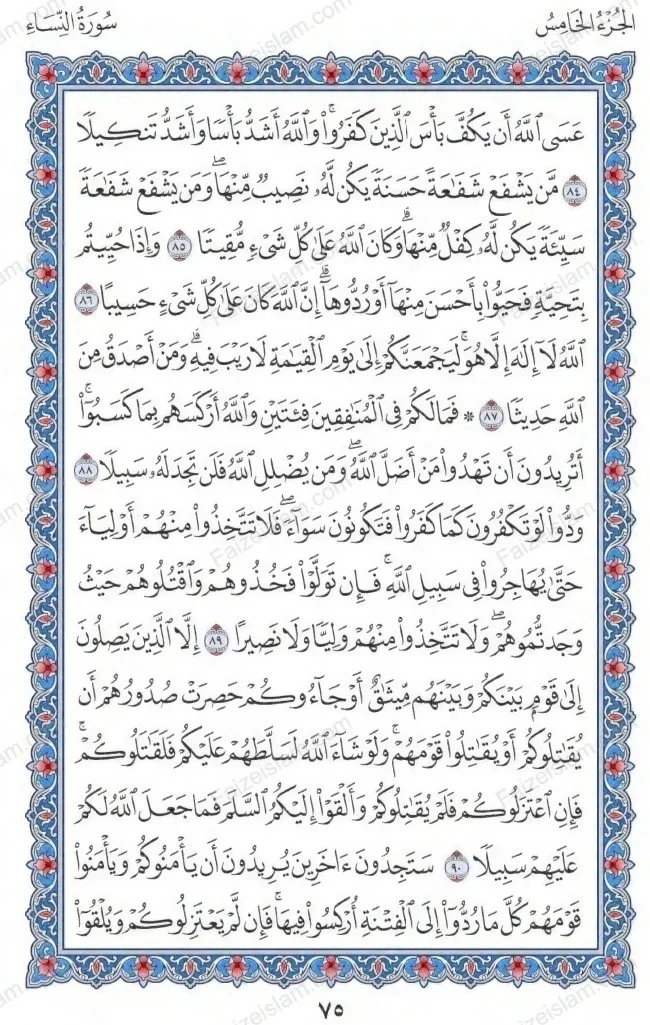 الجُزْءُ الخَامِسُ
سُورَةُ النِّسَاءِ
عَسَى ٱللَّهُ أَن يَكُفَّ بَأْسَ ٱلَّذِينَ كَفَرُوا۟ۚ وَٱللَّهُ أَشَدُّ بَأْسًا وَأَشَدُّ تَنكِيلًا
٨٤ مَّن يَشْفَعْ شَفَـٰعَةً حَسَنَةً يَكُن لَّهُۥ نَصِيبٌ مِّنْهَاۖ وَمَن يَشْفَعْ شَفَـٰعَةً
سَيِّئَةً يَكُن لَّهُۥ كِفْلٌ مِّنْهَاۗ وَكَانَ ٱللَّهُ عَلَىٰ كُلِّ شَىْءٍ مُّقِيتًا ٨٥ وَإِذَا حُيِّيتُم
بِتَحِيَّةٍ فَحَيُّوا۟ بِأَحْسَنَ مِنْهَآ أَوْ رُدُّوهَآۗ إِنَّ ٱللَّهَ كَانَ عَلَىٰ كُلِّ شَىْءٍ حَسِيبًا ٨٦
ٱللَّهُ لَآ إِلَـٰهَ إِلَّا هُوَۚ لَيَجْمَعَنَّكُمْ إِلَىٰ يَوْمِ ٱلْقِيَـٰمَةِ لَا رَيْبَ فِيهِۗ وَمَنْ أَصْدَقُ مِنَ
ٱللَّهِ حَدِيثًا ٨٧ * فَمَا لَكُمْ فِى ٱلْمُنَـٰفِقِينَ فِئَتَيْنِ وَٱللَّهُ أَرْكَسَهُم بِمَا كَسَبُوٓا۟ۚ
أَتُرِيدُونَ أَن تَهْدُوا۟ مَنْ أَضَلَّ ٱللَّهُۖ وَمَن يُضْلِلِ ٱللَّهُ فَلَن تَجِدَ لَهُۥ سَبِيلًا ٨٨
وَدُّوا۟ لَوْ تَكْفُرُونَ كَمَا كَفَرُوا۟ فَتَكُونُونَ سَوَآءًۖ فَلَا تَتَّخِذُوا۟ مِنْهُمْ أَوْلِيَآءَ
حَتَّىٰ يُهَاجِرُوا۟ فِى سَبِيلِ ٱللَّهِۚ فَإِن تَوَلَّوْا۟ فَخُذُوهُمْ وَٱقْتُلُوهُمْ حَيْثُ
وَجَدتُّمُوهُمْۖ وَلَا تَتَّخِذُوا۟ مِنْهُمْ وَلِيًّا وَلَا نَصِيرًا ٨٩ إِلَّا ٱلَّذِينَ يَصِلُونَ
إِلَىٰ قَوْمٍۭ بَيْنَكُمْ وَبَيْنَهُم مِّيثَـٰقٌ أَوْ جَآءُوكُمْ حَصِرَتْ صُدُورُهُمْ أَن
يُقَـٰتِلُوكُمْ أَوْ يُقَـٰتِلُوا۟ قَوْمَهُمْۚ وَلَوْ شَآءَ ٱللَّهُ لَسَلَّطَهُمْ عَلَيْكُمْ فَلَقَـٰتَلُوكُمْۚ
فَإِنِ ٱعْتَزَلُوكُمْ فَلَمْ يُقَـٰتِلُوكُمْ وَأَلْقَوْا۟ إِلَيْكُمُ ٱلسَّلَمَ فَمَا جَعَلَ ٱللَّهُ لَكُمْ
عَلَيْهِمْ سَبِيلًا ٩٠ سَتَجِدُونَ ءَاخَرِينَ يُرِيدُونَ أَن يَأْمَنُوكُمْ وَيَأْمَنُوا۟
قَوْمَهُمْ كُلَّ مَا رُدُّوٓا۟ إِلَى ٱلْفِتْنَةِ أُرْكِسُوا۟ فِيهَاۚ فَإِن لَّمْ يَعْتَزِلُوكُمْ وَيُلْقُوٓا۟
٧٥
Faizeislam.com